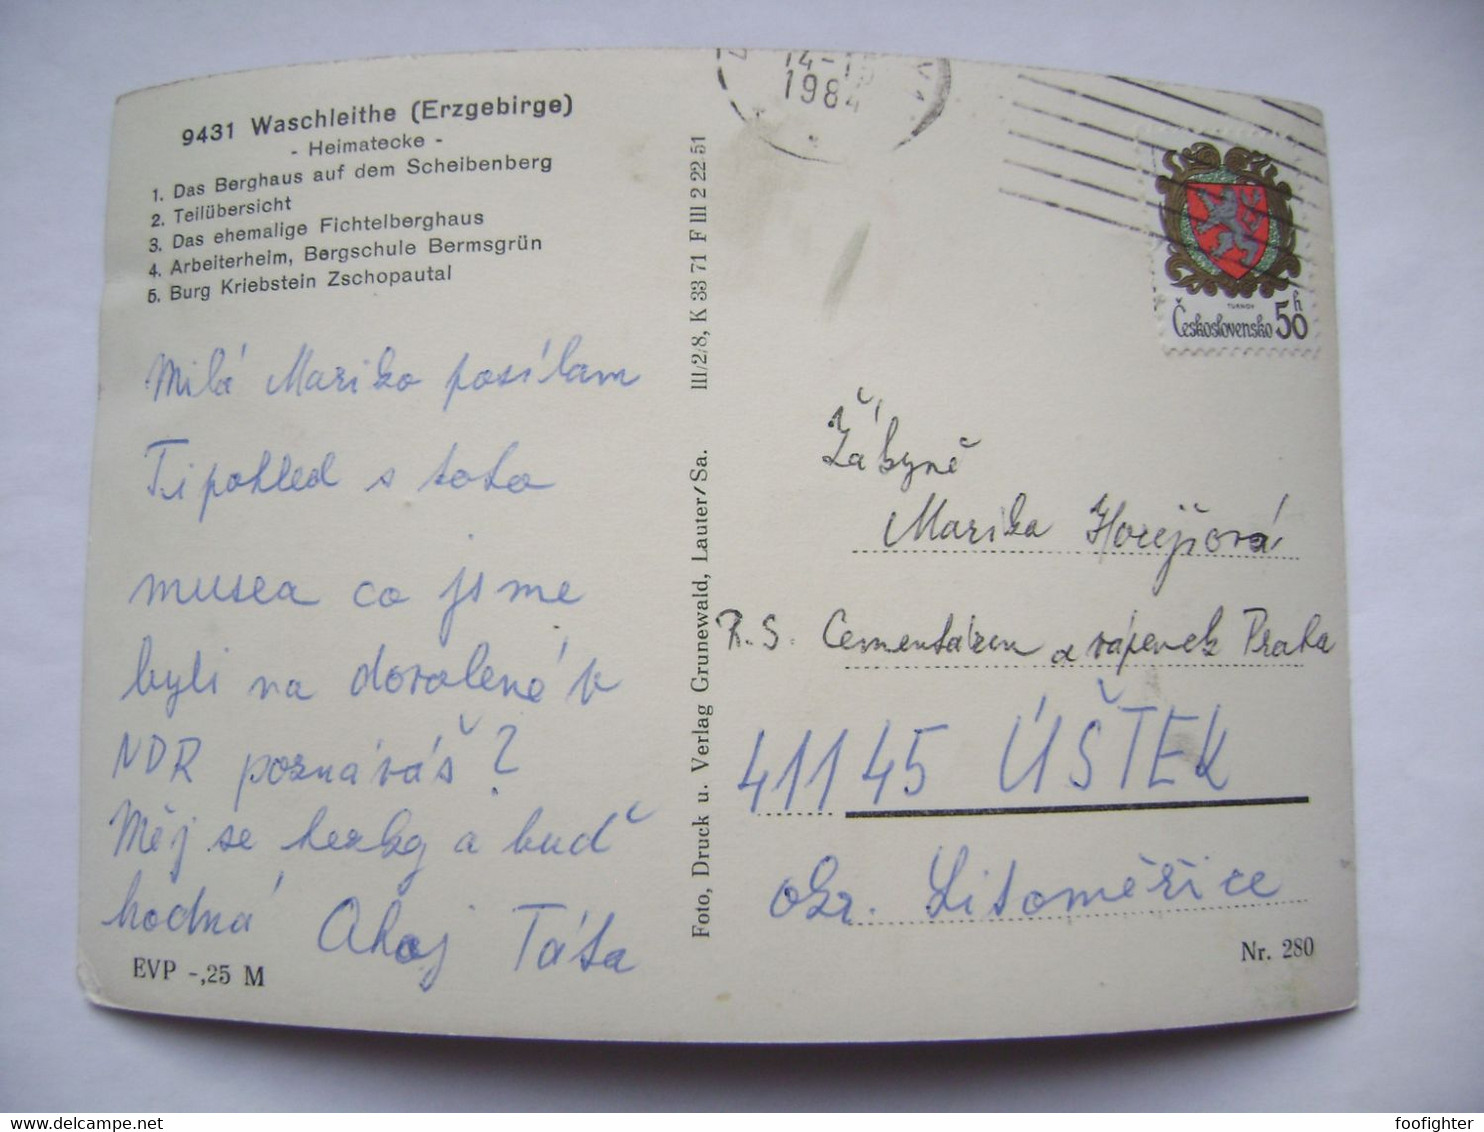 9431 Waschleithe (Erzgebirge)
- Heimatecke -
1. Das Berghaus auf dem Scheibenberg
2. Teilübersicht
3. Das ehemalige Fichtelberghaus
4. Arbeiterheim, Bergschule Bermsgrün
5. Burg Kriebstein Zschopautal
Milá Mariko posílam
Ti pohled s toho
musea co jsme
byli na dovolené v
NDR poznáváš?
Měj se hezky a buď
hodná Ahoj Táta
EVP -,25 M
Foto, Druck u. Verlag Grunewald, Lauter/Sa. III/2/8, K 33 71 F III 2 22 51
14-15
1984
TURNOV
Československo 50 h
Žákyně
Marika Horejšová
R.S. Cementáren a vápenek Praha
41145 ÚŠTEK
okr. Litoměřice
Nr. 280
foofighter
delcampe.net